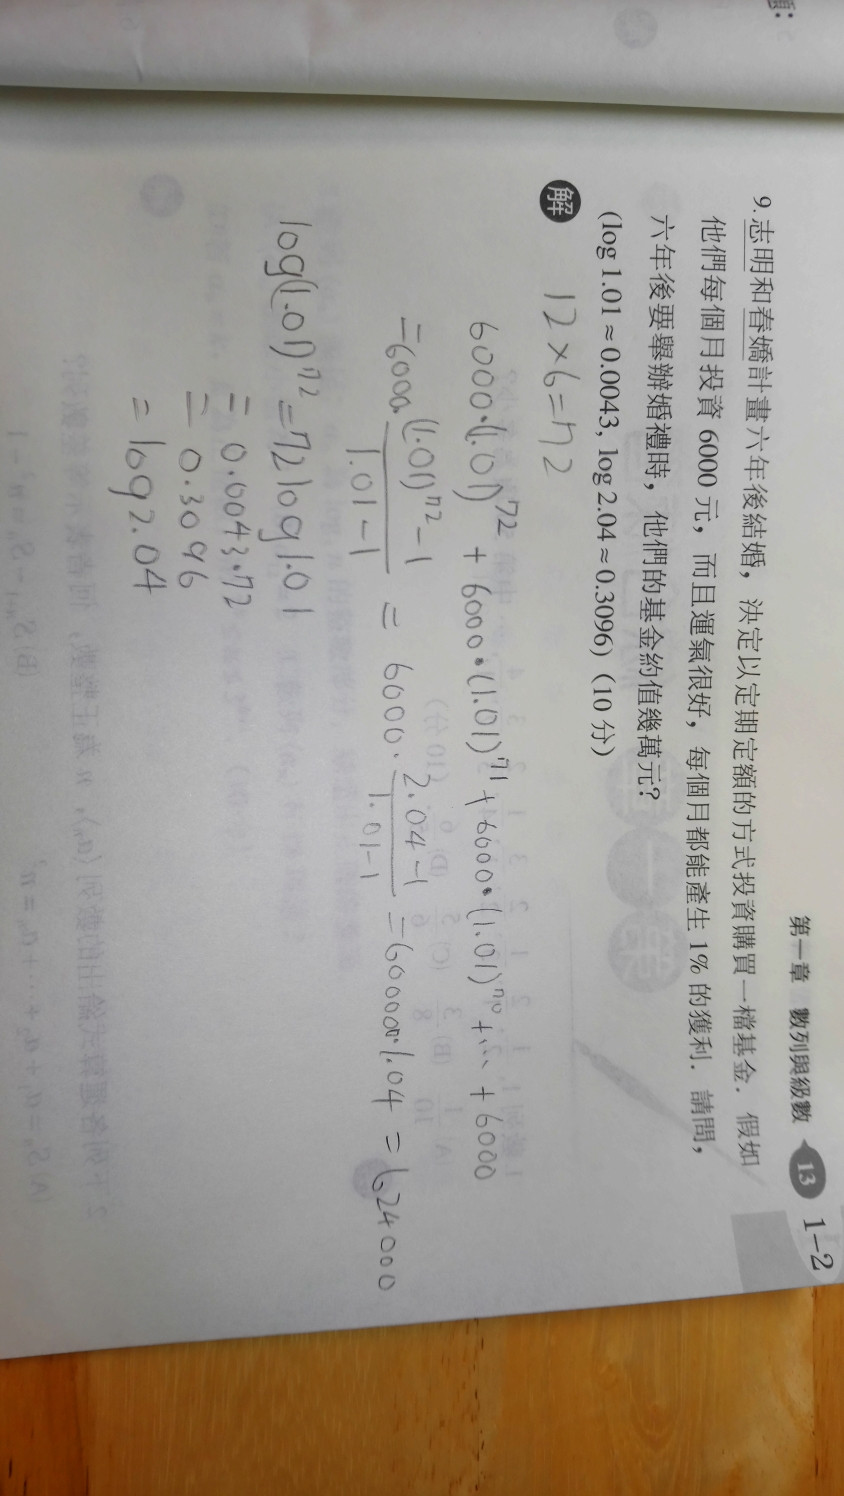 第一章 數列與級數 13 1-2
9. 志明和春嬌計畫六年後結婚，決定以定期定額的方式投資購買一檔基金．假如
他們每個月投資 6000 元，而且運氣很好，每個月都能產生 1% 的獲利．請問，
六年後要舉辦婚禮時，他們的基金約值幾萬元？
(log 1.01 ≈ 0.0043, log 2.04 ≈ 0.3096)（10 分）
解
12×6=72
6000·(1.01)^72 + 6000·(1.01)^71 + 6000·(1.01)^70 + ... + 6000
=6000·((1.01)^72 -1)/(1.01-1) = 6000·(2.04-1)/(1.01-1) =600000·1.04 = 624000
log(1.01)^72 =72log1.01
= 0.0043·72
= 0.3096
= log2.04